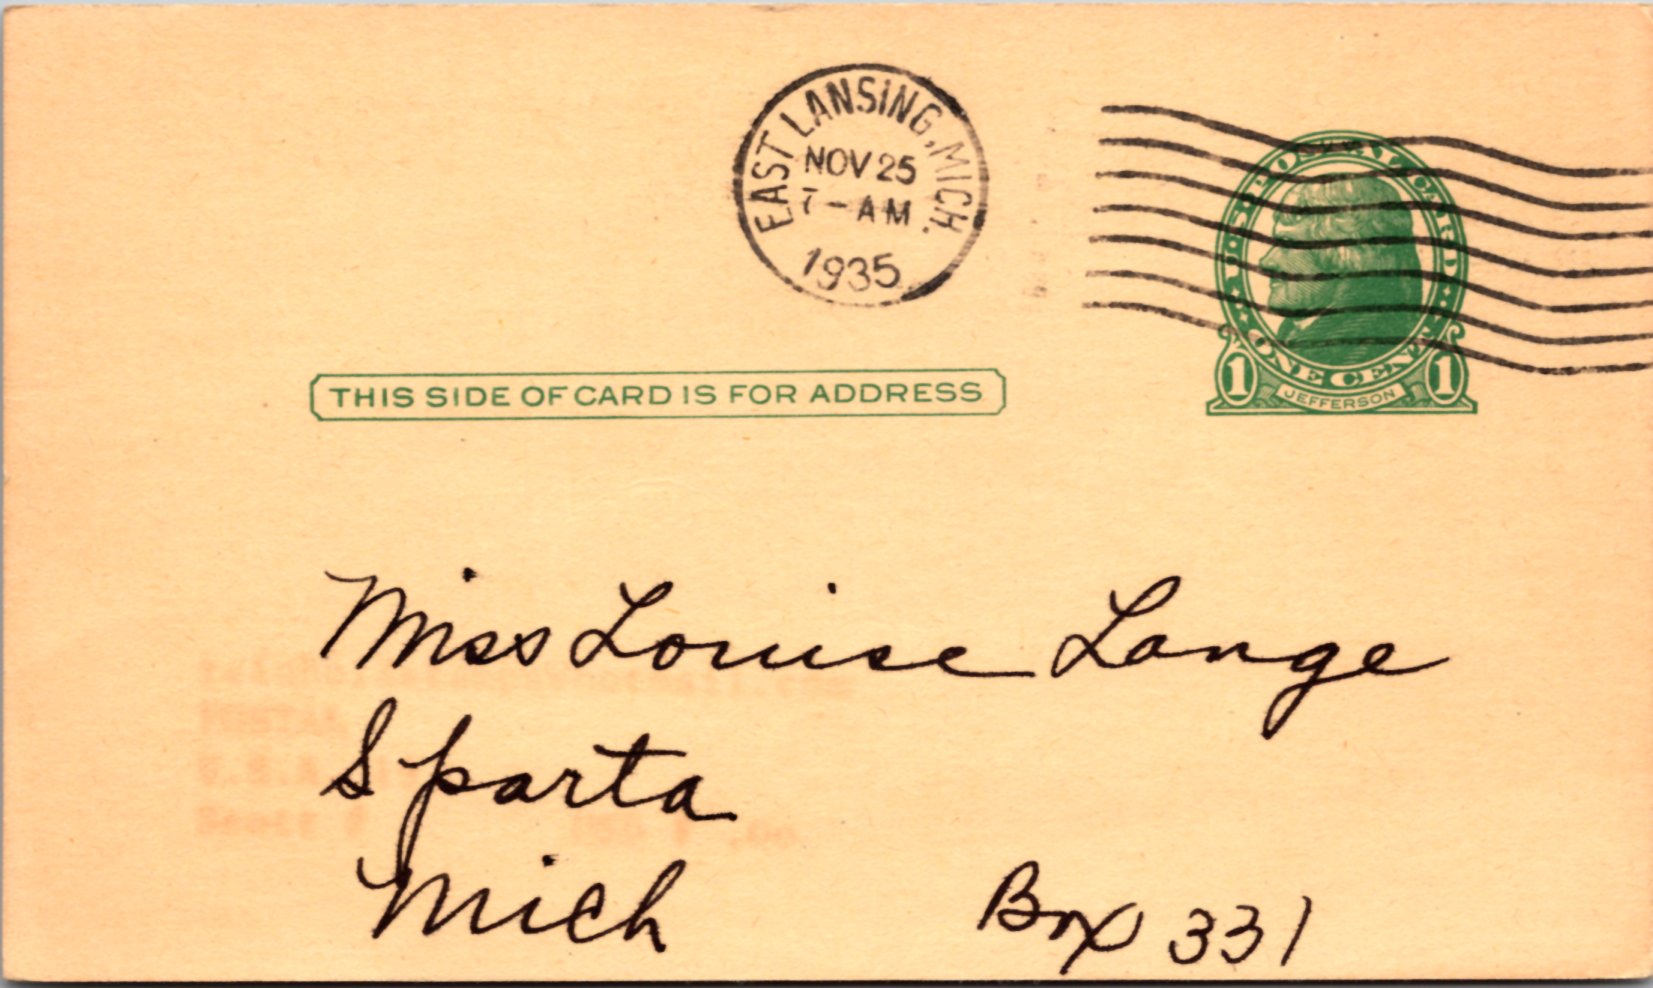 EAST LANSING, MICH.
NOV 25
7 - AM
1935
U·S·POSTAL CARD
ONE CENT
1 JEFFERSON 1
THIS SIDE OF CARD IS FOR ADDRESS
Miss Louise Lange
Sparta
Mich
Box 331